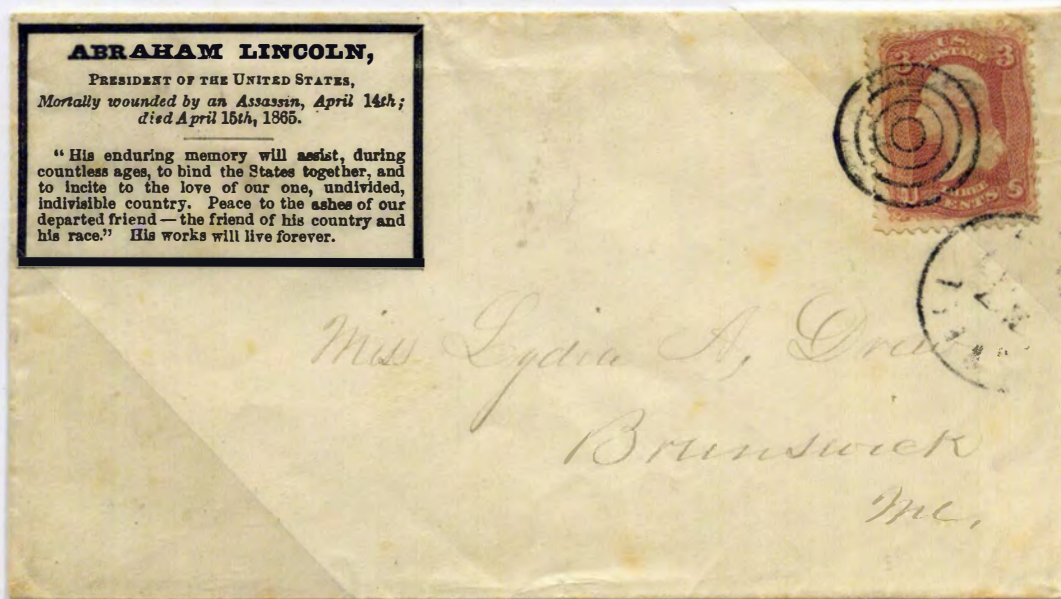 ABRAHAM LINCOLN,
PRESIDENT OF THE UNITED STATES,
Mortally wounded by an Assassin, April 14th;
died April 15th, 1865.
“ His enduring memory will assist, during
countless ages, to bind the States together, and
to incite to the love of our one, undivided,
indivisible country. Peace to the ashes of our
departed friend — the friend of his country and
his race.” His works will live forever.
3 U.S. 3
POSTAGE
THREE
CENTS
Miss Lydia A, Drew
Brunswick
Me,